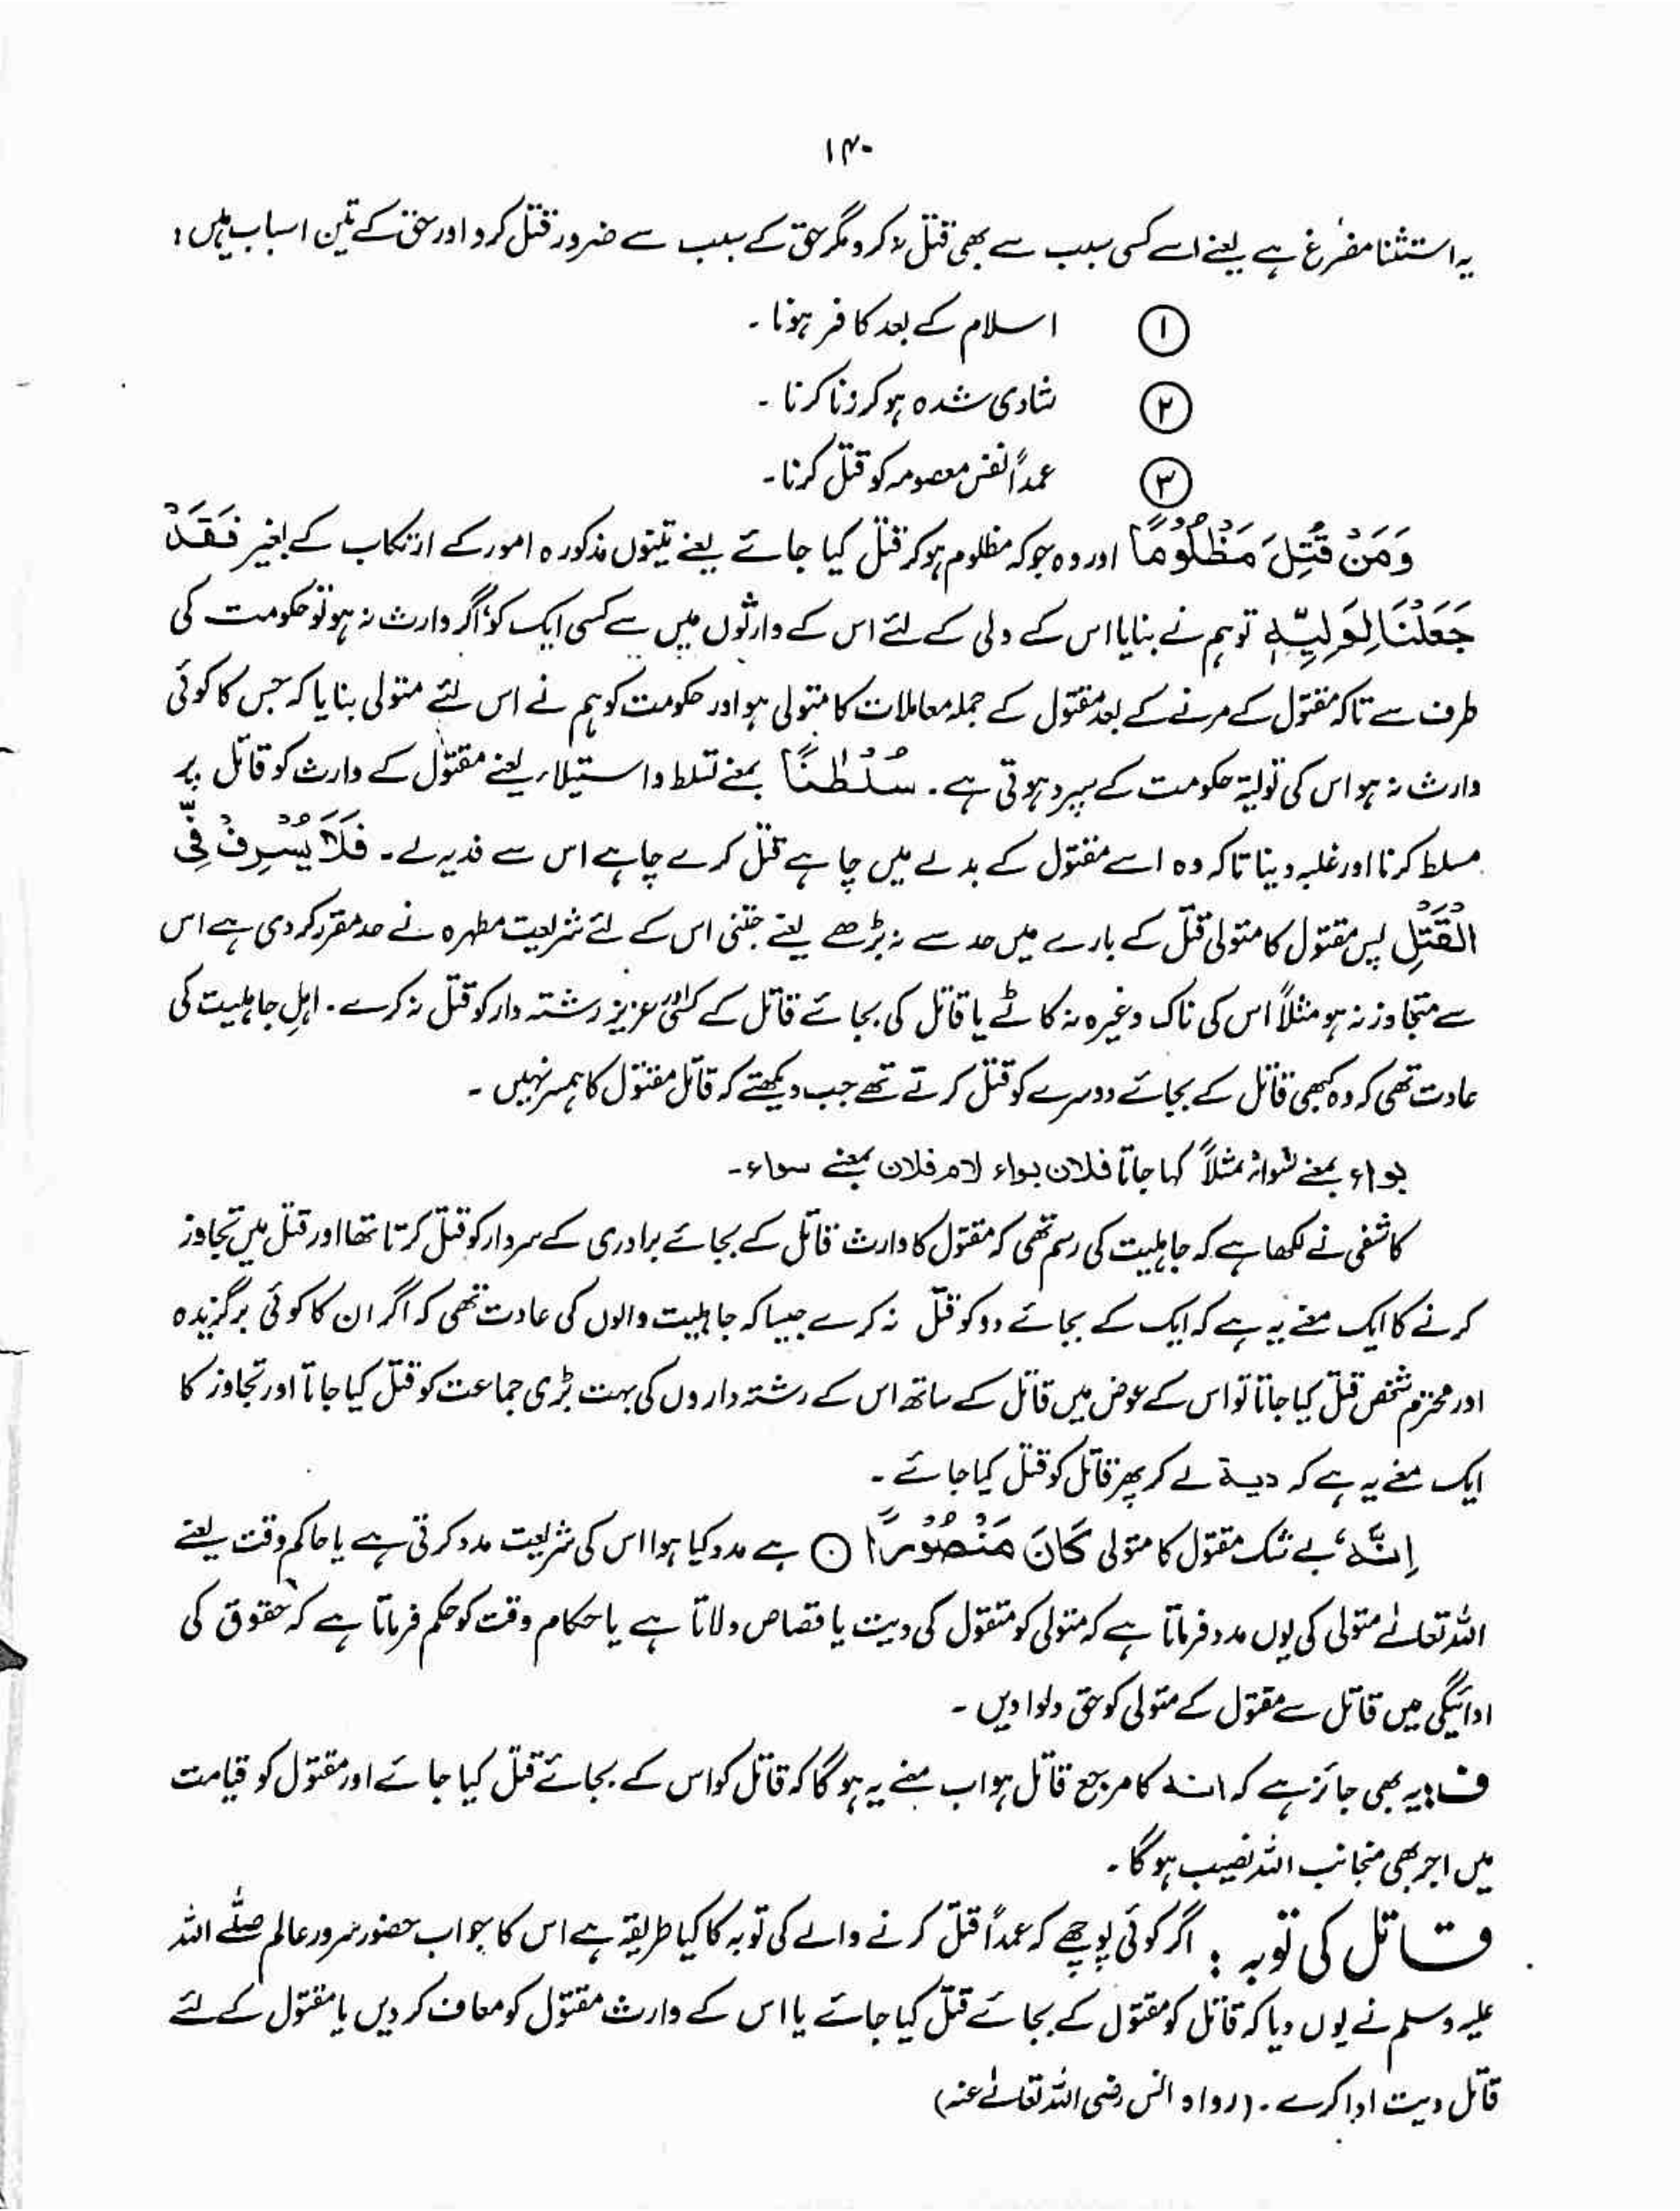 ۱۴۰
یہ استثنا مفرغ ہے یعنے اسے کسی سبب سے بھی قتل نہ کرو مگر حق کے سبب سے ضرور قتل کرو اور حق کے تین اسباب ہیں:
① اسلام کے بعد کافر ہونا ۔
② شادی شدہ ہو کر زنا کرنا ۔
③ عمداً نفس معصومہ کو قتل کرنا ۔
وَمَنْ قُتِلَ مَظْلُوْمًا اور وہ جو کہ مظلوم ہو کر قتل کیا جائے یعنے تینوں مذکورہ امور کے ارتکاب کے بغیر فَقَدْ
جَعَلْنَا لِوَلِیِّہٖ تو ہم نے بنایا اس کے ولی کے لئے اس کے وارثوں میں سے کسی ایک کو اگر وارث نہ ہو تو حکومت کی
طرف سے تاکہ مقتول کے مرنے کے بعد مقتول کے جملہ معاملات کا متولی ہو اور حکومت کو ہم نے اس لئے متولی بنایا کہ جس کا کوئی
وارث نہ ہو اس کی تولیۃ حکومت کے سپرد ہوتی ہے ۔ سُلْطٰنًا بمعنے تسلط و استیلاء یعنے مقتول کے وارث کو قاتل پر
مسلط کرنا اور غلبہ دینا تاکہ وہ اسے مقتول کے بدلے میں چاہے قتل کرے چاہے اس سے فدیہ لے ۔ فَلَا یُسْرِفْ فِّی
الْقَتْلِ پس مقتول کا متولی قتل کے بارے میں حد سے نہ بڑھے یعنے جتنی اس کے لئے شریعت مطہرہ نے حد مقرر کر دی ہے اس
سے متجاوز نہ ہو مثلاً اس کی ناک وغیرہ نہ کاٹے یا قاتل کی بجائے قاتل کے کسی اور عزیز رشتہ دار کو قتل نہ کرے ۔ اہل جاہلیت کی
عادت تھی کہ وہ کبھی قاتل کے بجائے دوسرے کو قتل کرتے تھے جب دیکھتے کہ قاتل مقتول کا ہمسر نہیں ۔
بواء بمعنے مثلاً کہا جاتا فلان بواء لام فلان بمعنے سواء ۔
کاشفی نے لکھا ہے کہ جاہلیت کی رسم تھی کہ مقتول کا وارث قاتل کے بجائے برادری کے سردار کو قتل کرتا تھا اور قتل میں تجاوز
کرنے کا ایک معنے یہ ہے کہ ایک کے بجائے دو کو قتل نہ کرے جیسا کہ جاہلیت والوں کی عادت تھی کہ اگر ان کا کوئی برگزیدہ
اور محترم شخص قتل کیا جاتا تو اس کے عوض میں قاتل کے ساتھ اس کے رشتہ داروں کی بہت بڑی جماعت کو قتل کیا جاتا اور تجاوز کا
ایک معنے یہ ہے کہ دیۃ لے کر پھر قاتل کو قتل کیا جائے ۔
اِنَّہٗ بے شک مقتول کا متولی کَانَ مَنْصُوْرًا ○ ہے مدد کیا ہوا اس کی شریعت مدد کرتی ہے یا حاکم وقت یعنے
اللہ تعالےٰ متولی کی یوں مدد فرماتا ہے کہ متولی کو مقتول کی دیت یا قصاص دلاتا ہے یا حکام وقت کو حکم فرماتا ہے کہ حقوق کی
ادائیگی میں قاتل سے مقتول کے متولی کو حق دلوا دیں ۔
ف : یہ بھی جائز ہے کہ انہ کا مرجع قاتل ہو اب معنے یہ ہو گا کہ قاتل کو اس کے بجائے قتل کیا جائے اور مقتول کو قیامت
میں اجر بھی منجانب اللہ نصیب ہو گا ۔
قاتل کی توبہ : اگر کوئی پوچھے کہ عمداً قتل کرنے والے کی توبہ کا کیا طریقہ ہے اس کا جواب حضور سرور عالم صلے اللہ
علیہ وسلم نے یوں دیا کہ قاتل کو مقتول کے بجائے قتل کیا جائے یا اس کے وارث مقتول کو معاف کر دیں یا مقتول کے لئے
قاتل دیت ادا کرے ۔ (رواہ انس رضی اللہ تعالےٰ عنہ)